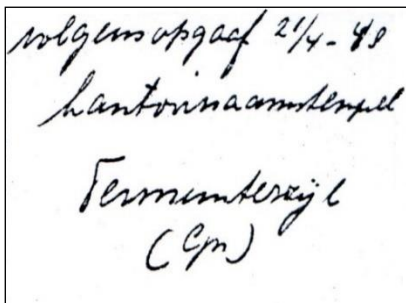 volgens opgaaf 21/4-48
kantoornaamstempel
Termunterzijl
(Gn)